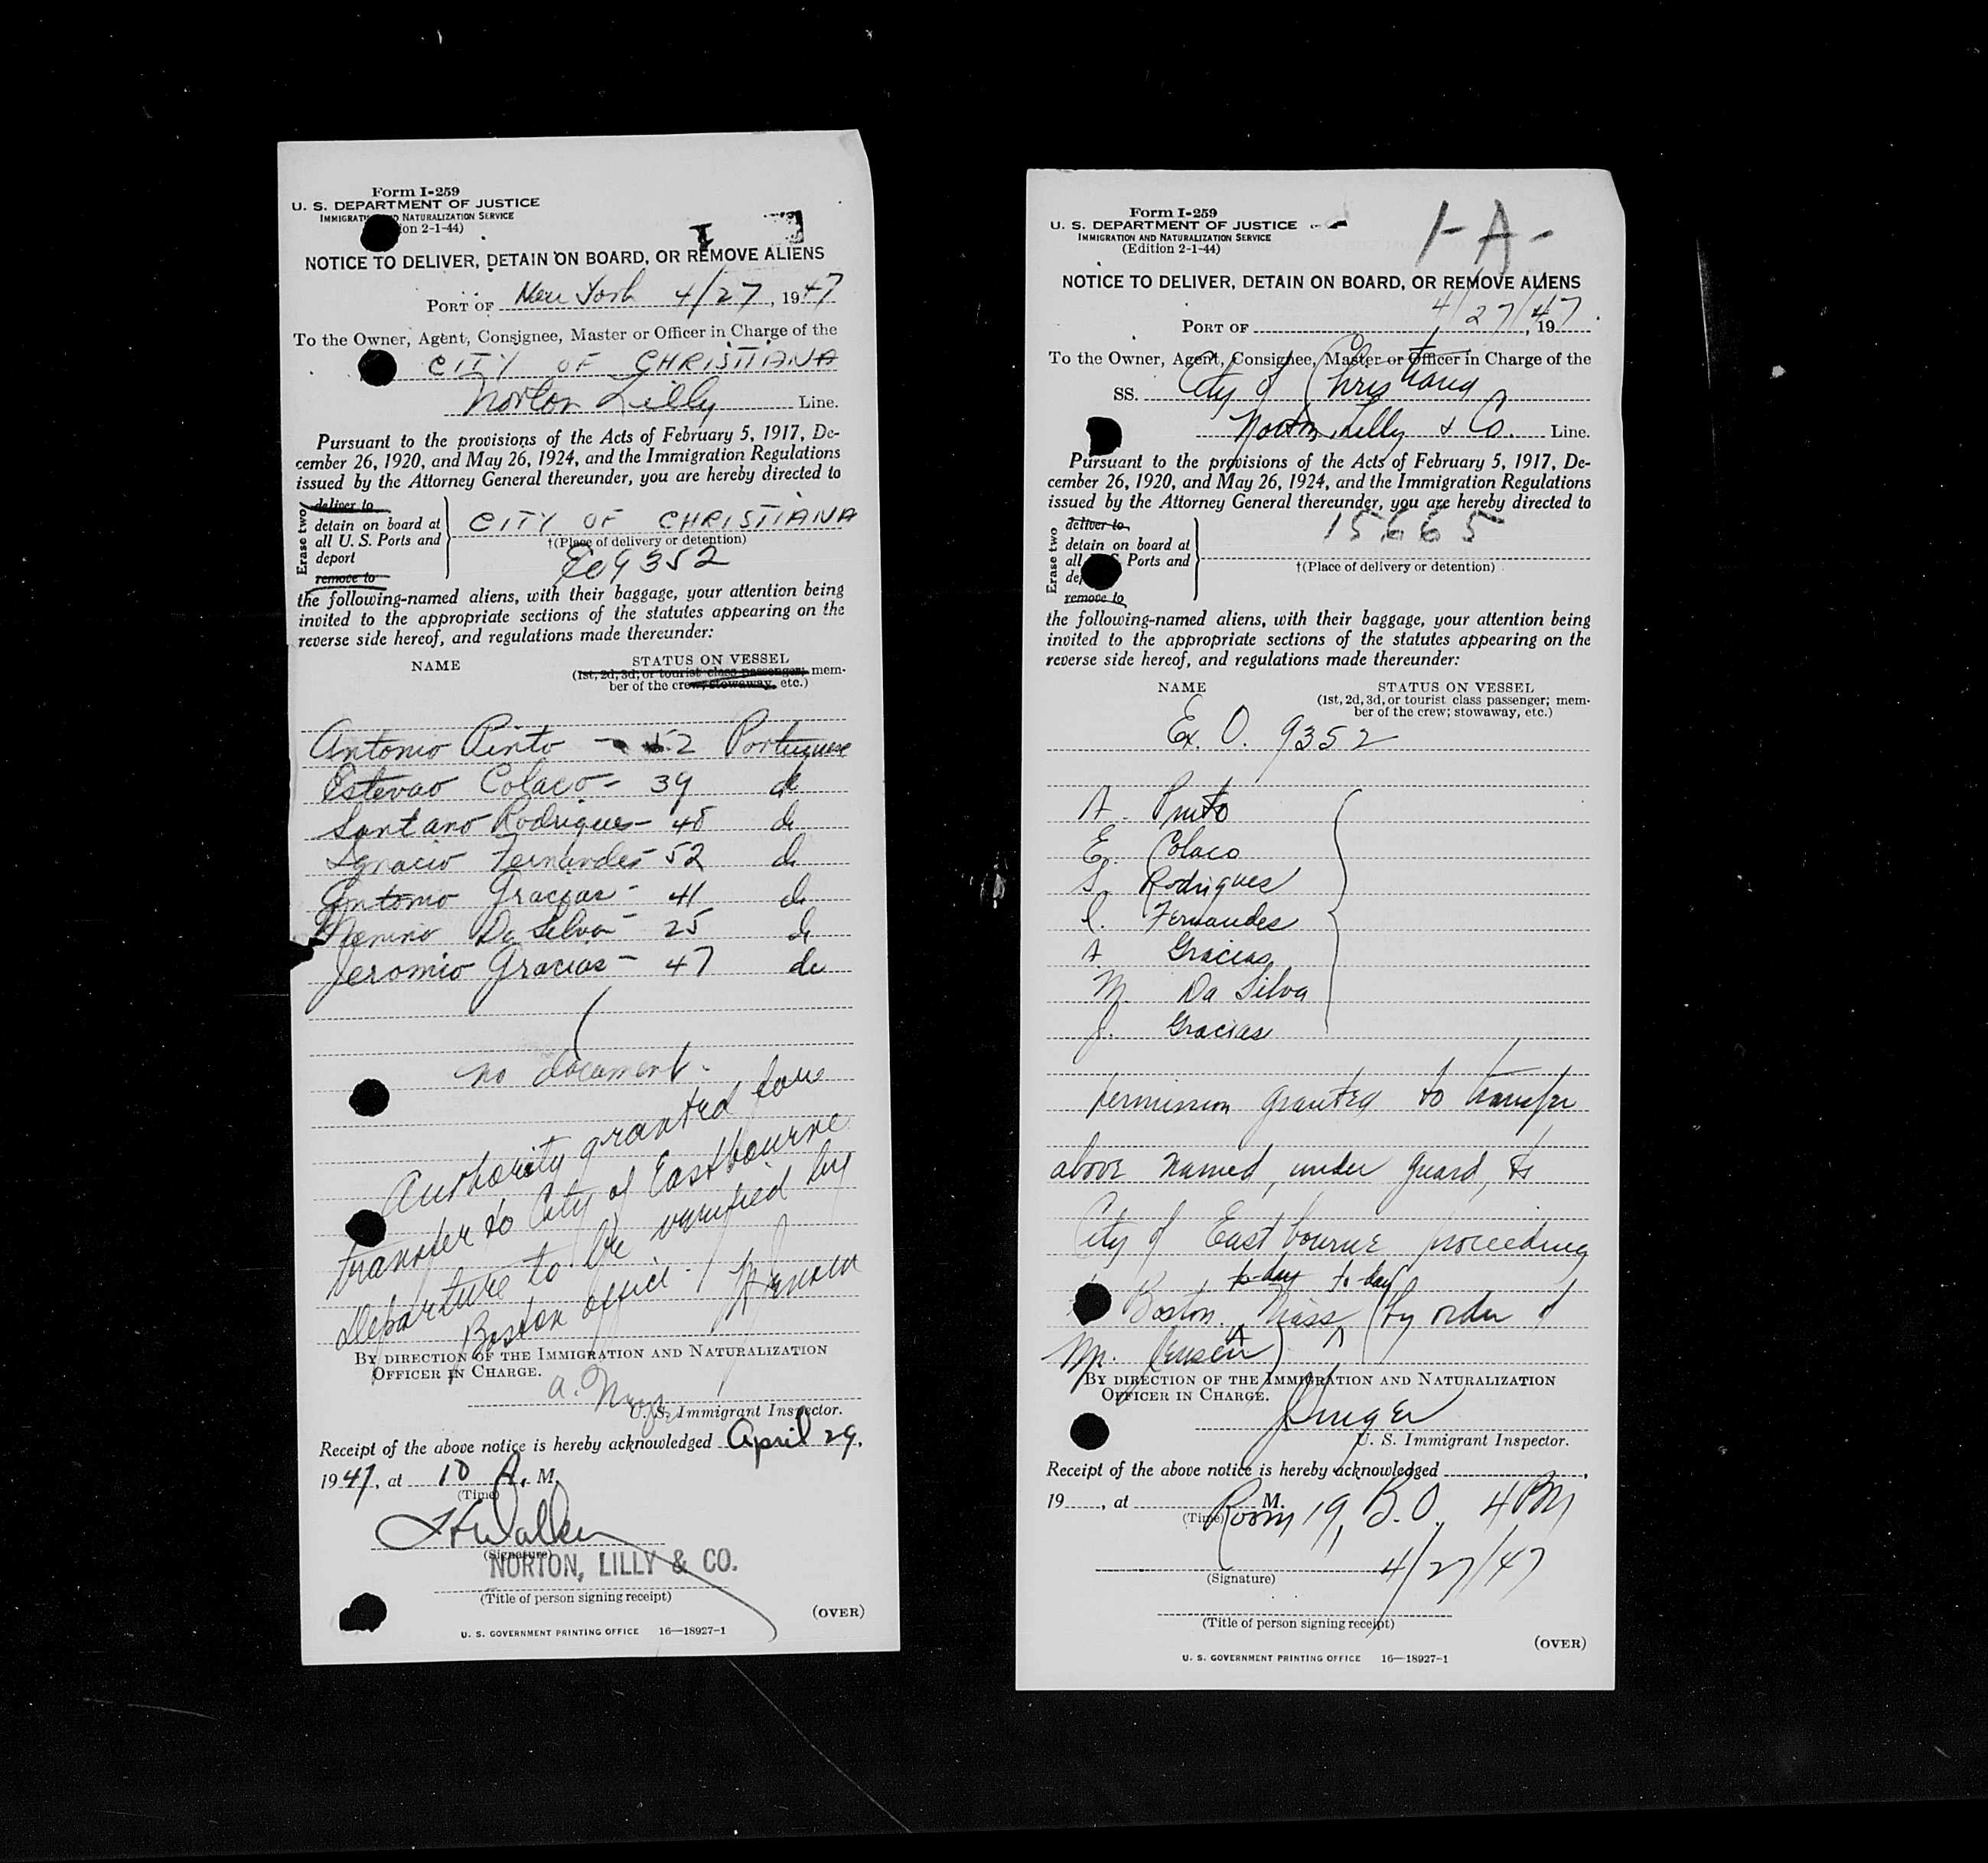 Form I-259
U. S. DEPARTMENT OF JUSTICE
IMMIGRATI NATURALIZATION SERVICE
ion 2-1-44)
NOTICE TO DELIVER, DETAIN ON BOARD, OR REMOVE ALIENS
PORT OF New York 4/27, 1947
To the Owner, Agent, Consignee, Master or Officer in Charge of the
CITY OF CHRISTIANA
Norton Lilly Line.
Pursuant to the provisions of the Acts of February 5, 1917, De-
cember 26, 1920, and May 26, 1924, and the Immigration Regulations
issued by the Attorney General thereunder, you are hereby directed to
Erase two
deliver to
detain on board at
all U. S. Ports and
deport
remove to
CITY OF CHRISTIANA
†(Place of delivery or detention)
Eo 9352
the following-named aliens, with their baggage, your attention being
invited to the appropriate sections of the statutes appearing on the
reverse side hereof, and regulations made thereunder:
NAME
STATUS ON VESSEL
(1st, 2d, 3d, or tourist class passenger; mem-
ber of the crew; stowaway, etc.)
Antonio Pinto - 52 Portuguese
Estevao Colaco - 39 do
Santano Rodrigues - 48 do
Ignacio Fernandes - 52 do
Antonio Gracias - 41 do
Menino Da Silva - 25 do
Jeromio Gracias - 47 do
no document.
Authority granted for
transfer to City of Eastbourne
departure to be verified by
Boston office.
BY DIRECTION OF THE IMMIGRATION AND NATURALIZATION
OFFICER IN CHARGE.
A.
U. S. Immigrant Inspector.
Receipt of the above notice is hereby acknowledged April 29,
1947, at 10 A. M.
(Time)
Walker
(Signature)
NORTON, LILLY & CO.
(Title of person signing receipt)
(OVER)
U. S. GOVERNMENT PRINTING OFFICE 16—18927-1
Form I-259
U. S. DEPARTMENT OF JUSTICE
IMMIGRATION AND NATURALIZATION SERVICE
(Edition 2-1-44)
1-A-
NOTICE TO DELIVER, DETAIN ON BOARD, OR REMOVE ALIENS
PORT OF 4/27/47, 19
To the Owner, Agent, Consignee, Master or Officer in Charge of the
SS. City of Christiana
Norton, Lilly & Co. Line.
Pursuant to the provisions of the Acts of February 5, 1917, De-
cember 26, 1920, and May 26, 1924, and the Immigration Regulations
issued by the Attorney General thereunder, you are hereby directed to
Erase two
deliver to
detain on board at
all Ports and
dep
remove to
15665
†(Place of delivery or detention)
the following-named aliens, with their baggage, your attention being
invited to the appropriate sections of the statutes appearing on the
reverse side hereof, and regulations made thereunder:
NAME
STATUS ON VESSEL
(1st, 2d, 3d, or tourist class passenger; mem-
ber of the crew; stowaway, etc.)
Ex. O. 9352
A. Pinto
E. Colaco
S. Rodrigues
I. Fernandes
A. Gracias
M. Da Silva
J. Gracias
permission granted to transfer
above named, under guard, to
City of Eastbourne proceeding
to-day to-day
to Boston. Mass (by order of
Mr. Jensen)
BY DIRECTION OF THE IMMIGRATION AND NATURALIZATION
OFFICER IN CHARGE.
U. S. Immigrant Inspector.
Receipt of the above notice is hereby acknowledged
19 , at M.
(Time)
Room 19, B.O. 4 PM
4/27/47
(Signature)
(Title of person signing receipt)
(OVER)
U. S. GOVERNMENT PRINTING OFFICE 16—18927-1